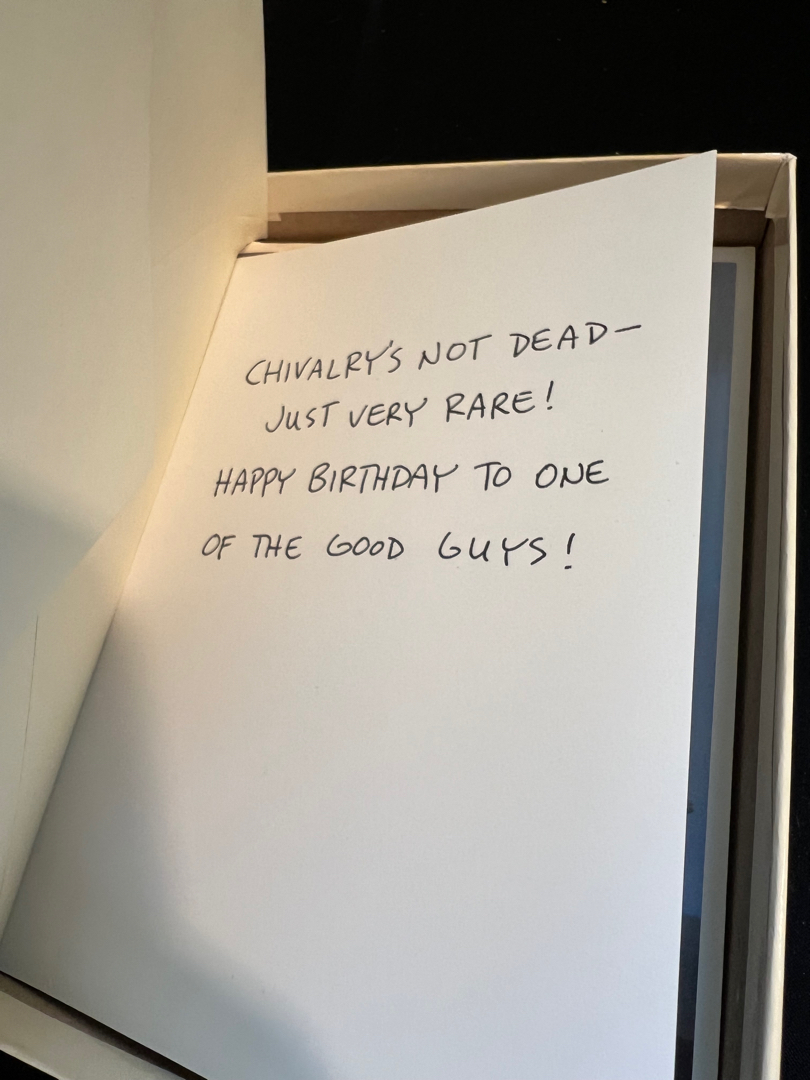 CHIVALRY'S NOT DEAD—
JUST VERY RARE!
HAPPY BIRTHDAY TO ONE
OF THE GOOD GUYS!